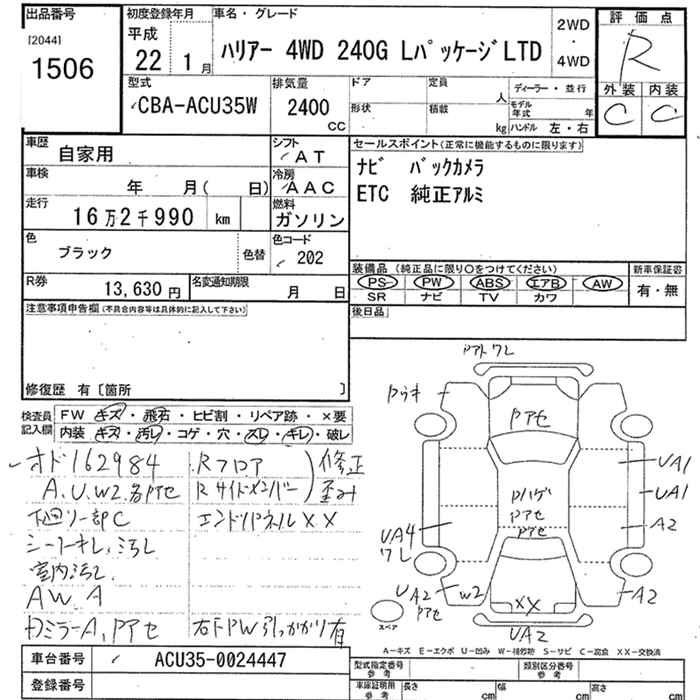 出品番号
[2044]
1506
初度登録年月
平成
22 1月
車名・グレード
ハリアー 4WD 240G Lパッケージ LTD
2WD
・
4WD
評価点
R
外装 内装
C C
型式
CBA-ACU35W
排気量
2400
CC
ドア
形状
定員
人
積載
kg
ディーラー・並行
モデル年式 年
ハンドル 左・右
車歴
自家用
シフト
AT
車検
年 月( 日)
冷房
AAC
走行
16万2千990 km
燃料
ガソリン
色
ブラック
色替
色コード
202
R券
13,630円
名変通知期限
月 日
セールスポイント(正常に機能するものに限ります)
ナビ バックカメラ
ETC 純正アルミ
装備品 (純正品に限り〇をつけてください)
PS PW ABS エアB AW
SR ナビ TV カワ
新車保証書
有・無
後日品
注意事項申告欄(不具合内容等は具体的に記入して下さい)
修復歴 有〔箇所 〕
検査員
記入欄
FW キズ・飛石・ヒビ割・リペア跡・×要
内装 キズ・汚レ・コゲ・穴・スレ・キレ・破レ
オド162984
A.U.W2.各Pアセ
下廻リ一部C
シートキレ、汚レ
室内汚レ.
AW A
Dミラー A, Pアセ
Rフロア
Rサイドメンバー
修正
歪み
エンドパネル XX
右F PW引っかかり有
Pアト ワレ
Pウキ
Pアセ
Pハゲ
Pアセ
Pアセ
UA1
UA1
A2
UA4
ワレ
UA2
Pアセ
W2
XX
A2
UA2
スペア
A-キズ E-エクボ U-凹み W-補修跡 S-サビ C-腐食 XX-交換済
車台番号
ACU35-0024447
登録番号
型式指定番号
参考
類別区分番号
参考
車庫証明用
参考
長さ cm
幅 cm
高さ cm